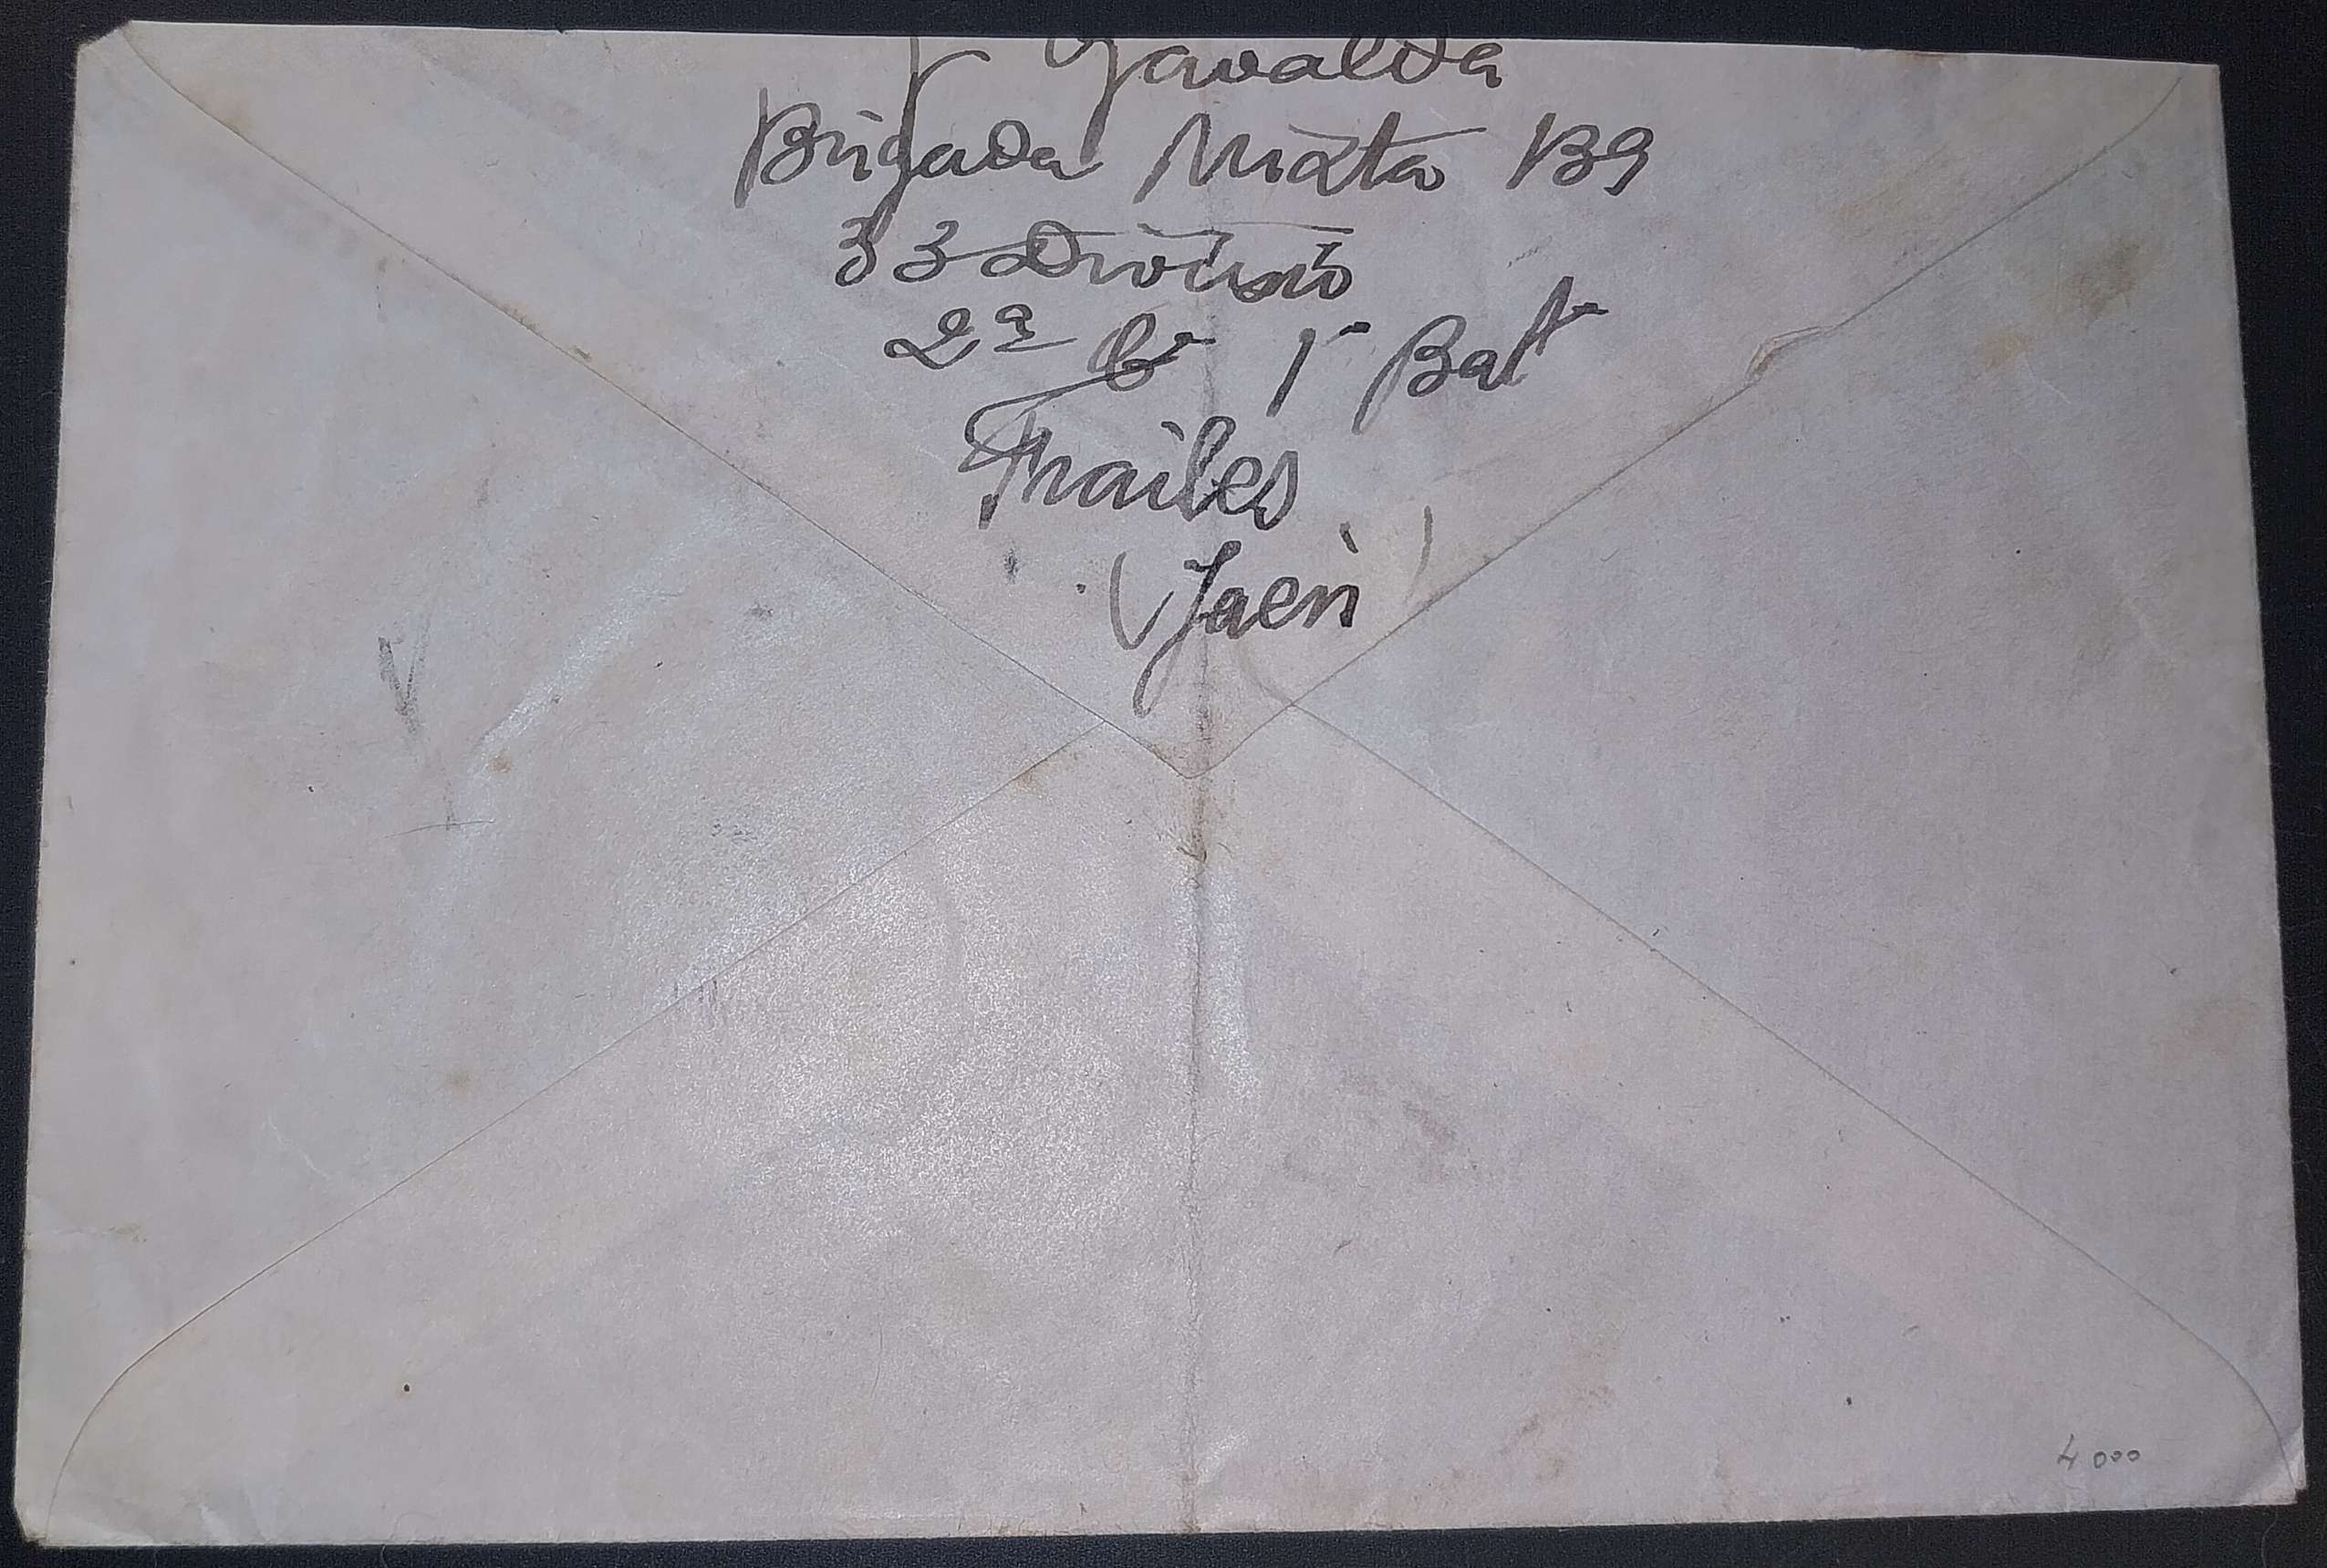 J Gavalda
Brigada Mixta 89
33 Divisió
2ª Cª 1r Batn
Frailes
(Jaèn)
4000